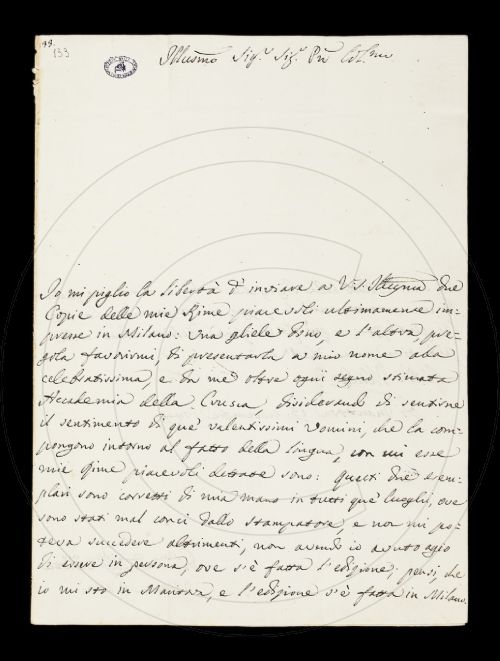 48.
133
Illusmo Sigr. Sigr. Prn Colmo
Io mi piglio la libertà d'inviare a V.S. Illma due
Copie delle mie Rime piacevoli ultimamente im-
presse in Milano: una gliele dono, e l'altra, pre-
gola favorirmi, di presentarla a mio nome alla
celebratissima, e da me oltre ogni segno stimata
Accademia della Crusca, disiderando di sentirne
il sentimento di que' valentissimi Uomini, che la com-
pongono intorno al fatto della lingua, con cui esse
mie Rime piacevoli dettate sono: questi due esem-
plari sono corretti di mia mano in tutti que' luoghi, ove
sono stati mal conci dallo stampatore, e non mi po-
teva succedere altrimenti, non avendo io avuto agio
di essere in persona, ove s'è fatta l'edizione; pensi, che
io mi sto in Mantova, e l'edizione s'è fatta in Milano.